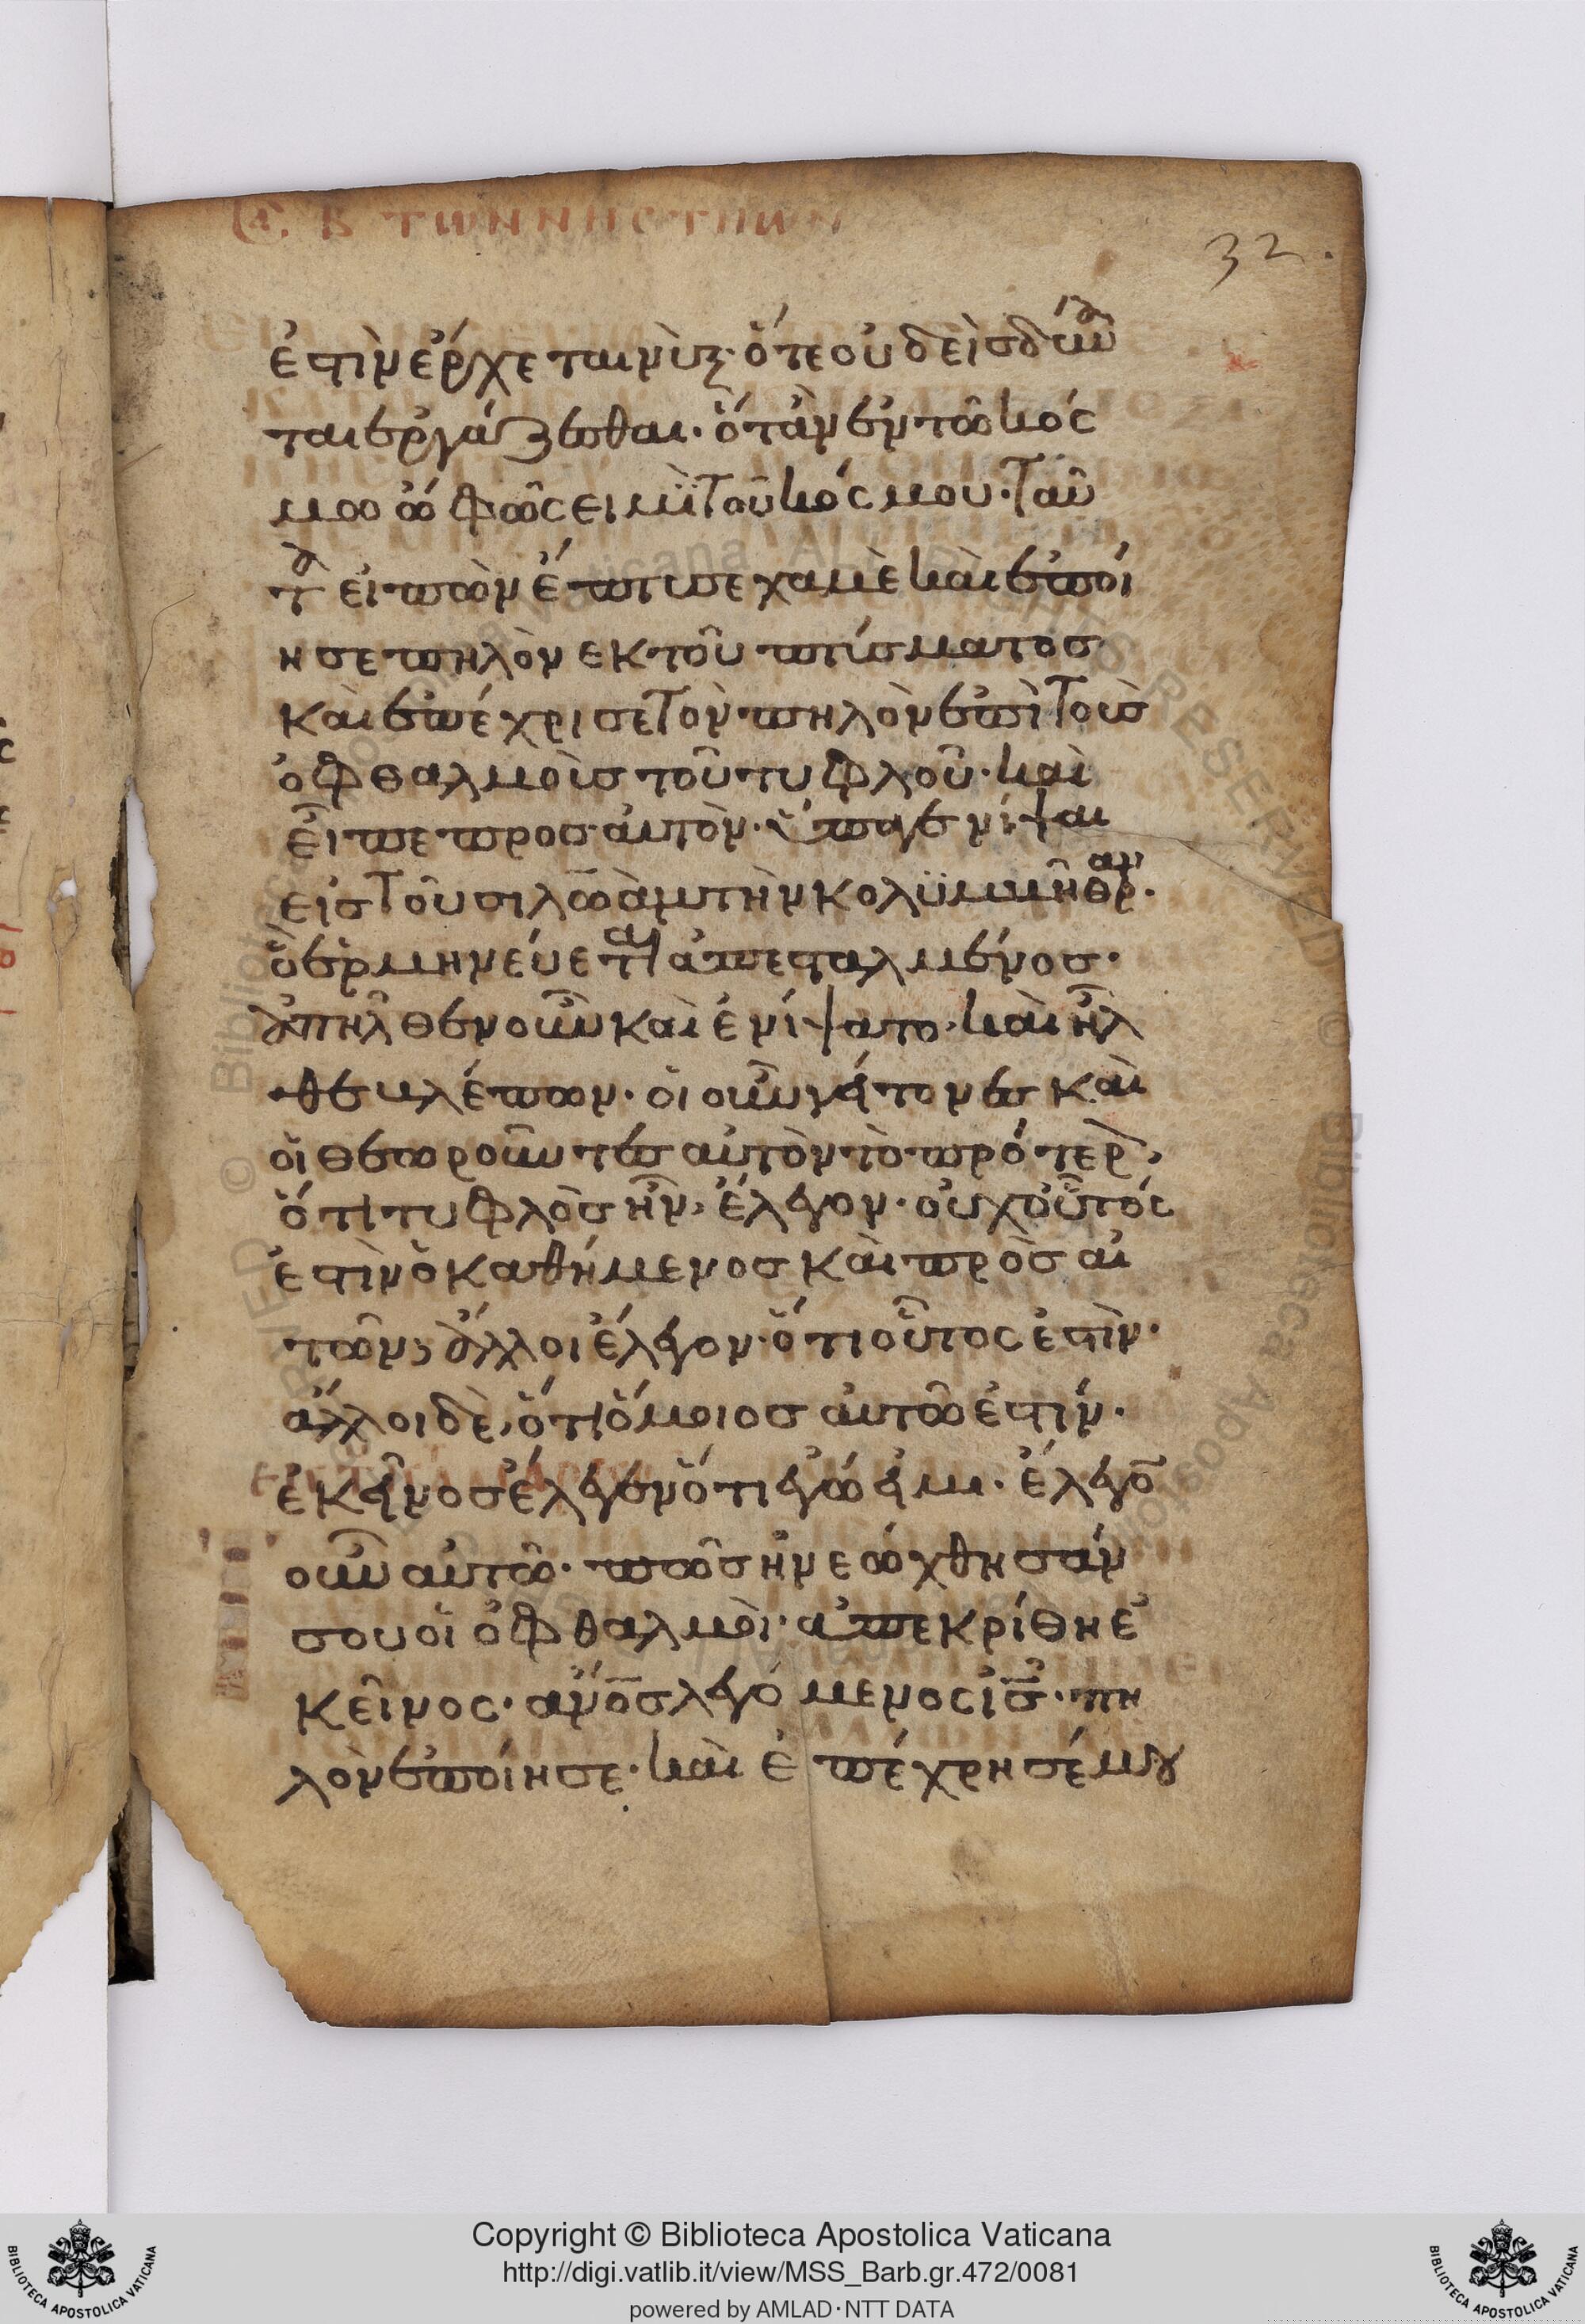 Β ΤΩΝ ΝΗΣΤΙΩΝ
32.
ἐστὶν ἔρχεται νὺξ· ὅτε οὐδεὶς δύνα
ται ἐργάζεσθαι· ὅτὰν ἐν τῶ κός
μοω ὦ φῶς εἰμϊ τοῦ κόσμου· ταῦ
τα εἰπὼν ἔπτυσε χαμὲ καὶ ἐποί
ησε πηλὸν εκ τοῦ πτύσματος
καὶ ἐπέχρισε τὸν πηλὸν ἐπὶ τοὺς
ὀφθαλμοὺς τοῦ τυφλοῦ· καὶ
εἶπε προς αὐτὸν· ὕπαγε νίψαι
εἰς τοῦ σιλωὰμ τὴν κολϋμβῆθραν·
ὃ ἑρμηνεύεται ἀπεσταλμένος·
ἀπῆλθεν οὖν καὶ ἐνίψατο· καὶ ἦλ
θε βλέπων· οἱ οὖν γείτονες καὶ
οἱ θεωροῦντες αὐτὸν τὸ πρότερὸν,
ὅτι τυφλὸς ἦν, ἔλεγον· οὐχ οὗτός
ἐστὶν ὁ καθήμενος καὶ προσαι
τῶν; ἄλλοι ἔλεγον· ὅτι οὗτος ἐστὶν·
ἄλλοι δὲ, ὅτι ὅμοιος αὐτῶ ἐστίν·
ἐκεῖνος ἔλεγεν ὅτι ἐγώ εἰμι· ἔλεγο̅
οὖν αὐτῶ· πῶς ἠνεώχθησάν
σου οἱ ὀφθαλμοὶ· ἀπεκρίθη ἐ
κεῖνος· ἄν̅ο̅ς λεγόμενος ἰ̅ς̅· πη
λὸν ἐποίησε· καὶ ἐπέχρησέ μου
Copyright © Biblioteca Apostolica Vaticana
http://digi.vatlib.it/view/MSS_Barb.gr.472/0081
powered by AMLAD·NTT DATA
BIBLIOTECA APOSTOLICA VATICANA
BIBLIOTECA APOSTOLICA VATICANA